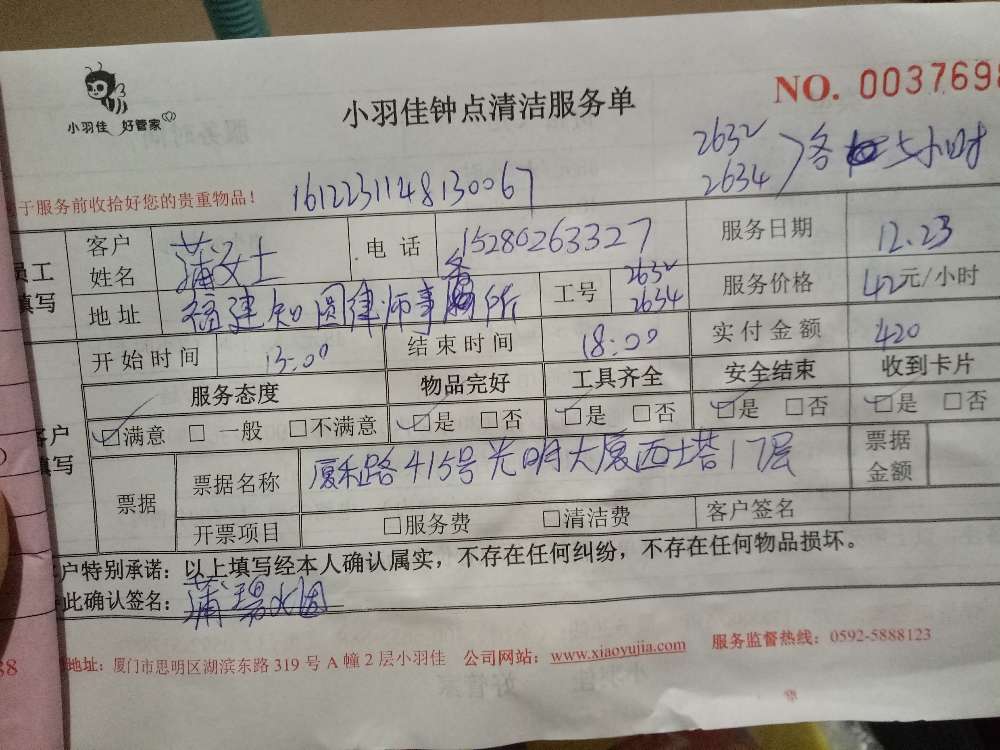 小羽佳 好管家
小羽佳钟点清洁服务单
NO. 003769
2632
2634
各 5小时
于服务前收拾好您的贵重物品！
1612231148130067
员工
填写
客户
姓名
蒲女士
电 话
15280263327
服务日期
12.23
地 址
福建知圆律师事务所
工号
2632
2634
服务价格
42元/小时
开始时间
13:00
结束时间
18:00
实付金额
420
客户
填写
服务态度
物品完好
工具齐全
安全结束
收到卡片
☑满意 □ 一般 □不满意
☑是 □否
☑是 □否
☑是 □否
☑是 □否
票据
票据名称
厦禾路415号光明大厦西塔17层
票据
金额
开票项目
□服务费 □清洁费
客户签名
客户特别承诺：以上填写经本人确认属实，不存在任何纠纷，不存在任何物品损坏。
此确认签名：
蒲
地址：厦门市思明区湖滨东路 319 号 A 幢 2 层小羽佳 公司网站：www.xiaoyujia.com 服务监督热线：0592-5888123